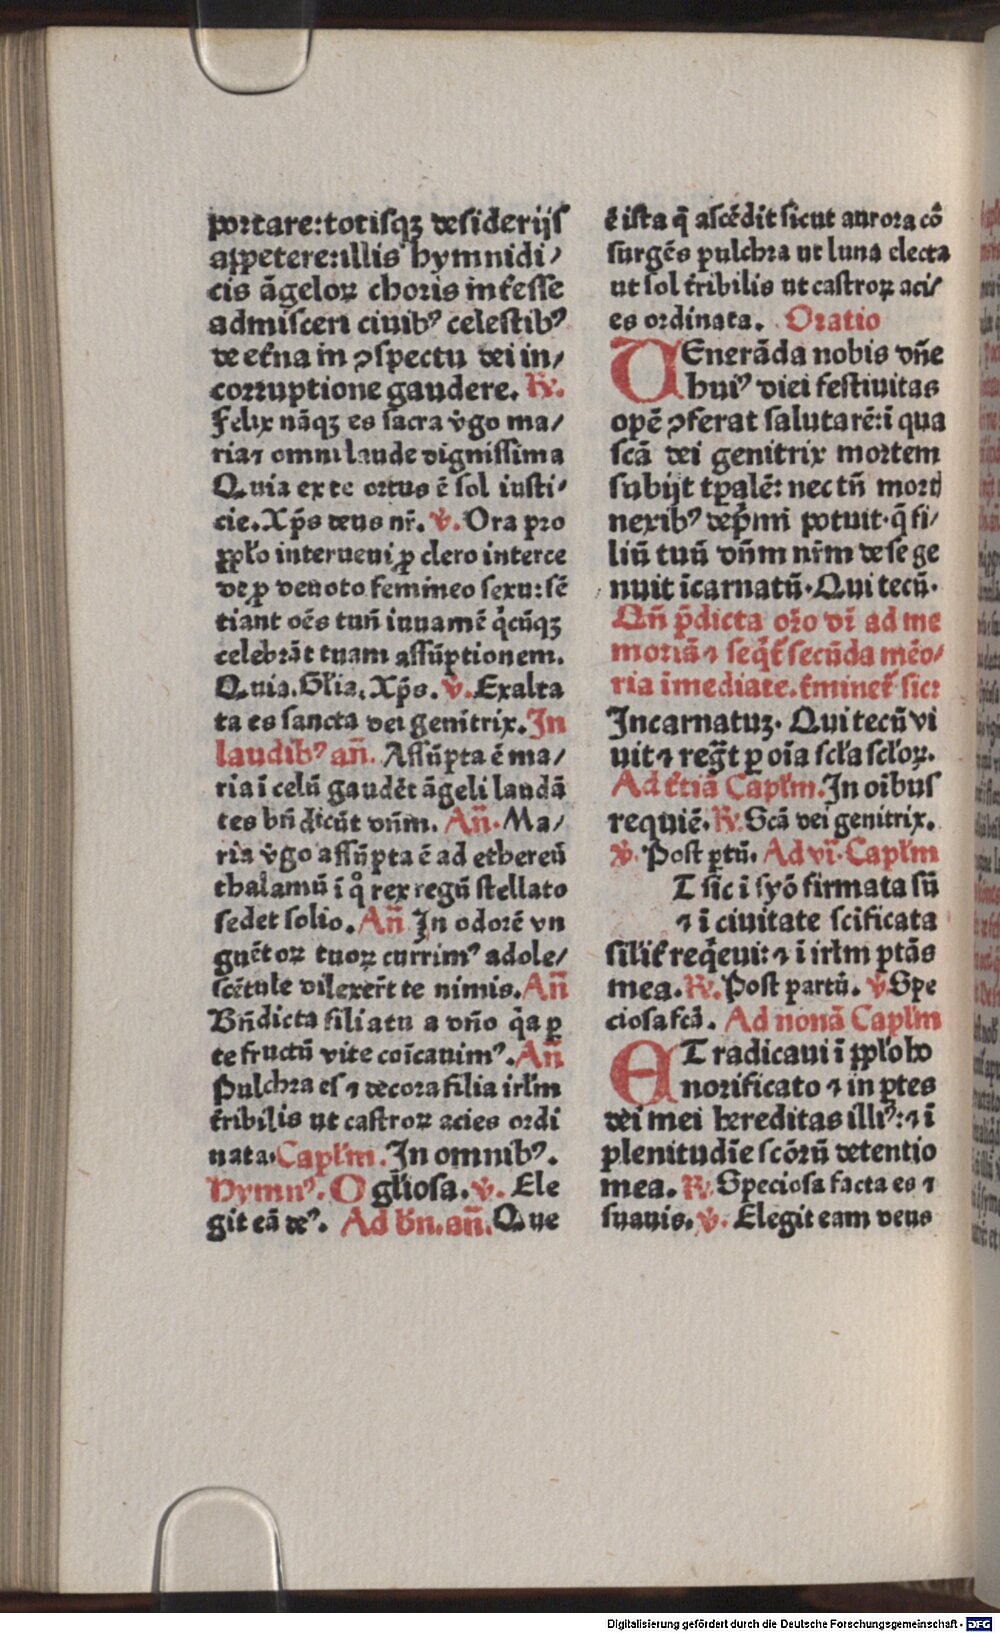 portare:totisqꝫ desiderijs
appetere:illis hymnidi/
cis āgeloꝝ choris infesse
admisceri ciuibꝰ celestibꝰ
de et̄na in ↄspectu dei in/
corruptione gaudere. R̷.
Felix nāqꝫ es sacra v̄go ma/
ria⁊ omni laude dignissima
Quia ex te ortus ē sol iusti/
cie. Xp̄s deus nr̄. V̷. Ora pro
pplo interueni ꝑ clero interce
de ꝑ deuoto femineo sexu: sē
tiant oēs tuū iuuamē q̄cūqꝫ
celebrāt tuam assūptionem.
Quia. Gl̄ia. Xp̄s. V̷. Exalta
ta es sancta dei genitrix. In
laudibꝰ añ. Assūpta ē ma/
ria ī celū gaudēt āgeli laudā
tes bn̄dicūt dn̄m. Añ. Ma/
ria v̄go assūpta ē ad ethereū
thalamū ī q̊ rex regū stellato
sedet solio. Añ In odorē vn
guētoꝝ tuoꝝ currimꝰ adole/
scētule dilexer̄t te nimis. Añ
Bn̄dicta filia tu a dn̄o q̄a ꝑ
te fructū vite coīcauimꝰ. Añ
Pulchra es ⁊ decora filia irl̄m
t̄ribilis ut castroꝝ acies ordi
nata. Capl̄m. In omnibꝰ.
Hymnꝰ. O gl̄iosa. V̷. Ele
git eā deꝰ. Ad bn̄. añ. Que
ē ista q̄ ascēdit sicut aurora cō
surgēs pulchra ut luna electa
ut sol t̄ribilis ut castroꝝ aci/
es ordinata. Oratio
VEnerāda nobis dn̄e
huiꝰ diei festiuitas
opē ↄferat salutarē: ī qua
scā dei genitrix mortem
subijt tp̄alē: nec tn̄ mortꝭ
nexibꝰ dep̄mi potuit. q̄ fi/
liū tuū dn̄m nr̄m de se ge
nuit īcarnatū. Qui tecū.
Qn̄ p̄dicta or̄o dr̄ ad me
moriā ⁊ seq̄t̄ secūda mēo/
ria īmediate. t̄minet̄ sic:
Incarnatuꝫ. Qui tecū vi
uit ⁊ regn̄t ꝑ oīa scl̄a scl̄oꝝ.
Ad t̄tiā Capl̄m. In oibus
requiē. R̷. Scā dei genitrix.
V̷. Post ptū. Ad vī. Capl̄m
T sic ī syō firmata sū
⁊ ī ciuitate scīficata
silit̄ req̄eui: ⁊ ī irl̄m ptās
mea. R̷. Post partū. V̷. Spe
ciosa fcā. Ad nonā Capl̄m
ET radicaui ī pplo ho
norificato ⁊ in ꝑtes
dei mei hereditas illiꝰ: ⁊ ī
plenitudīe scōꝝ detentio
mea. R̷. Speciosa facta es ⁊
suauis. V̷. Elegit eam deus
Digitalisierung gefördert durch die Deutsche Forschungsgemeinschaft - DFG